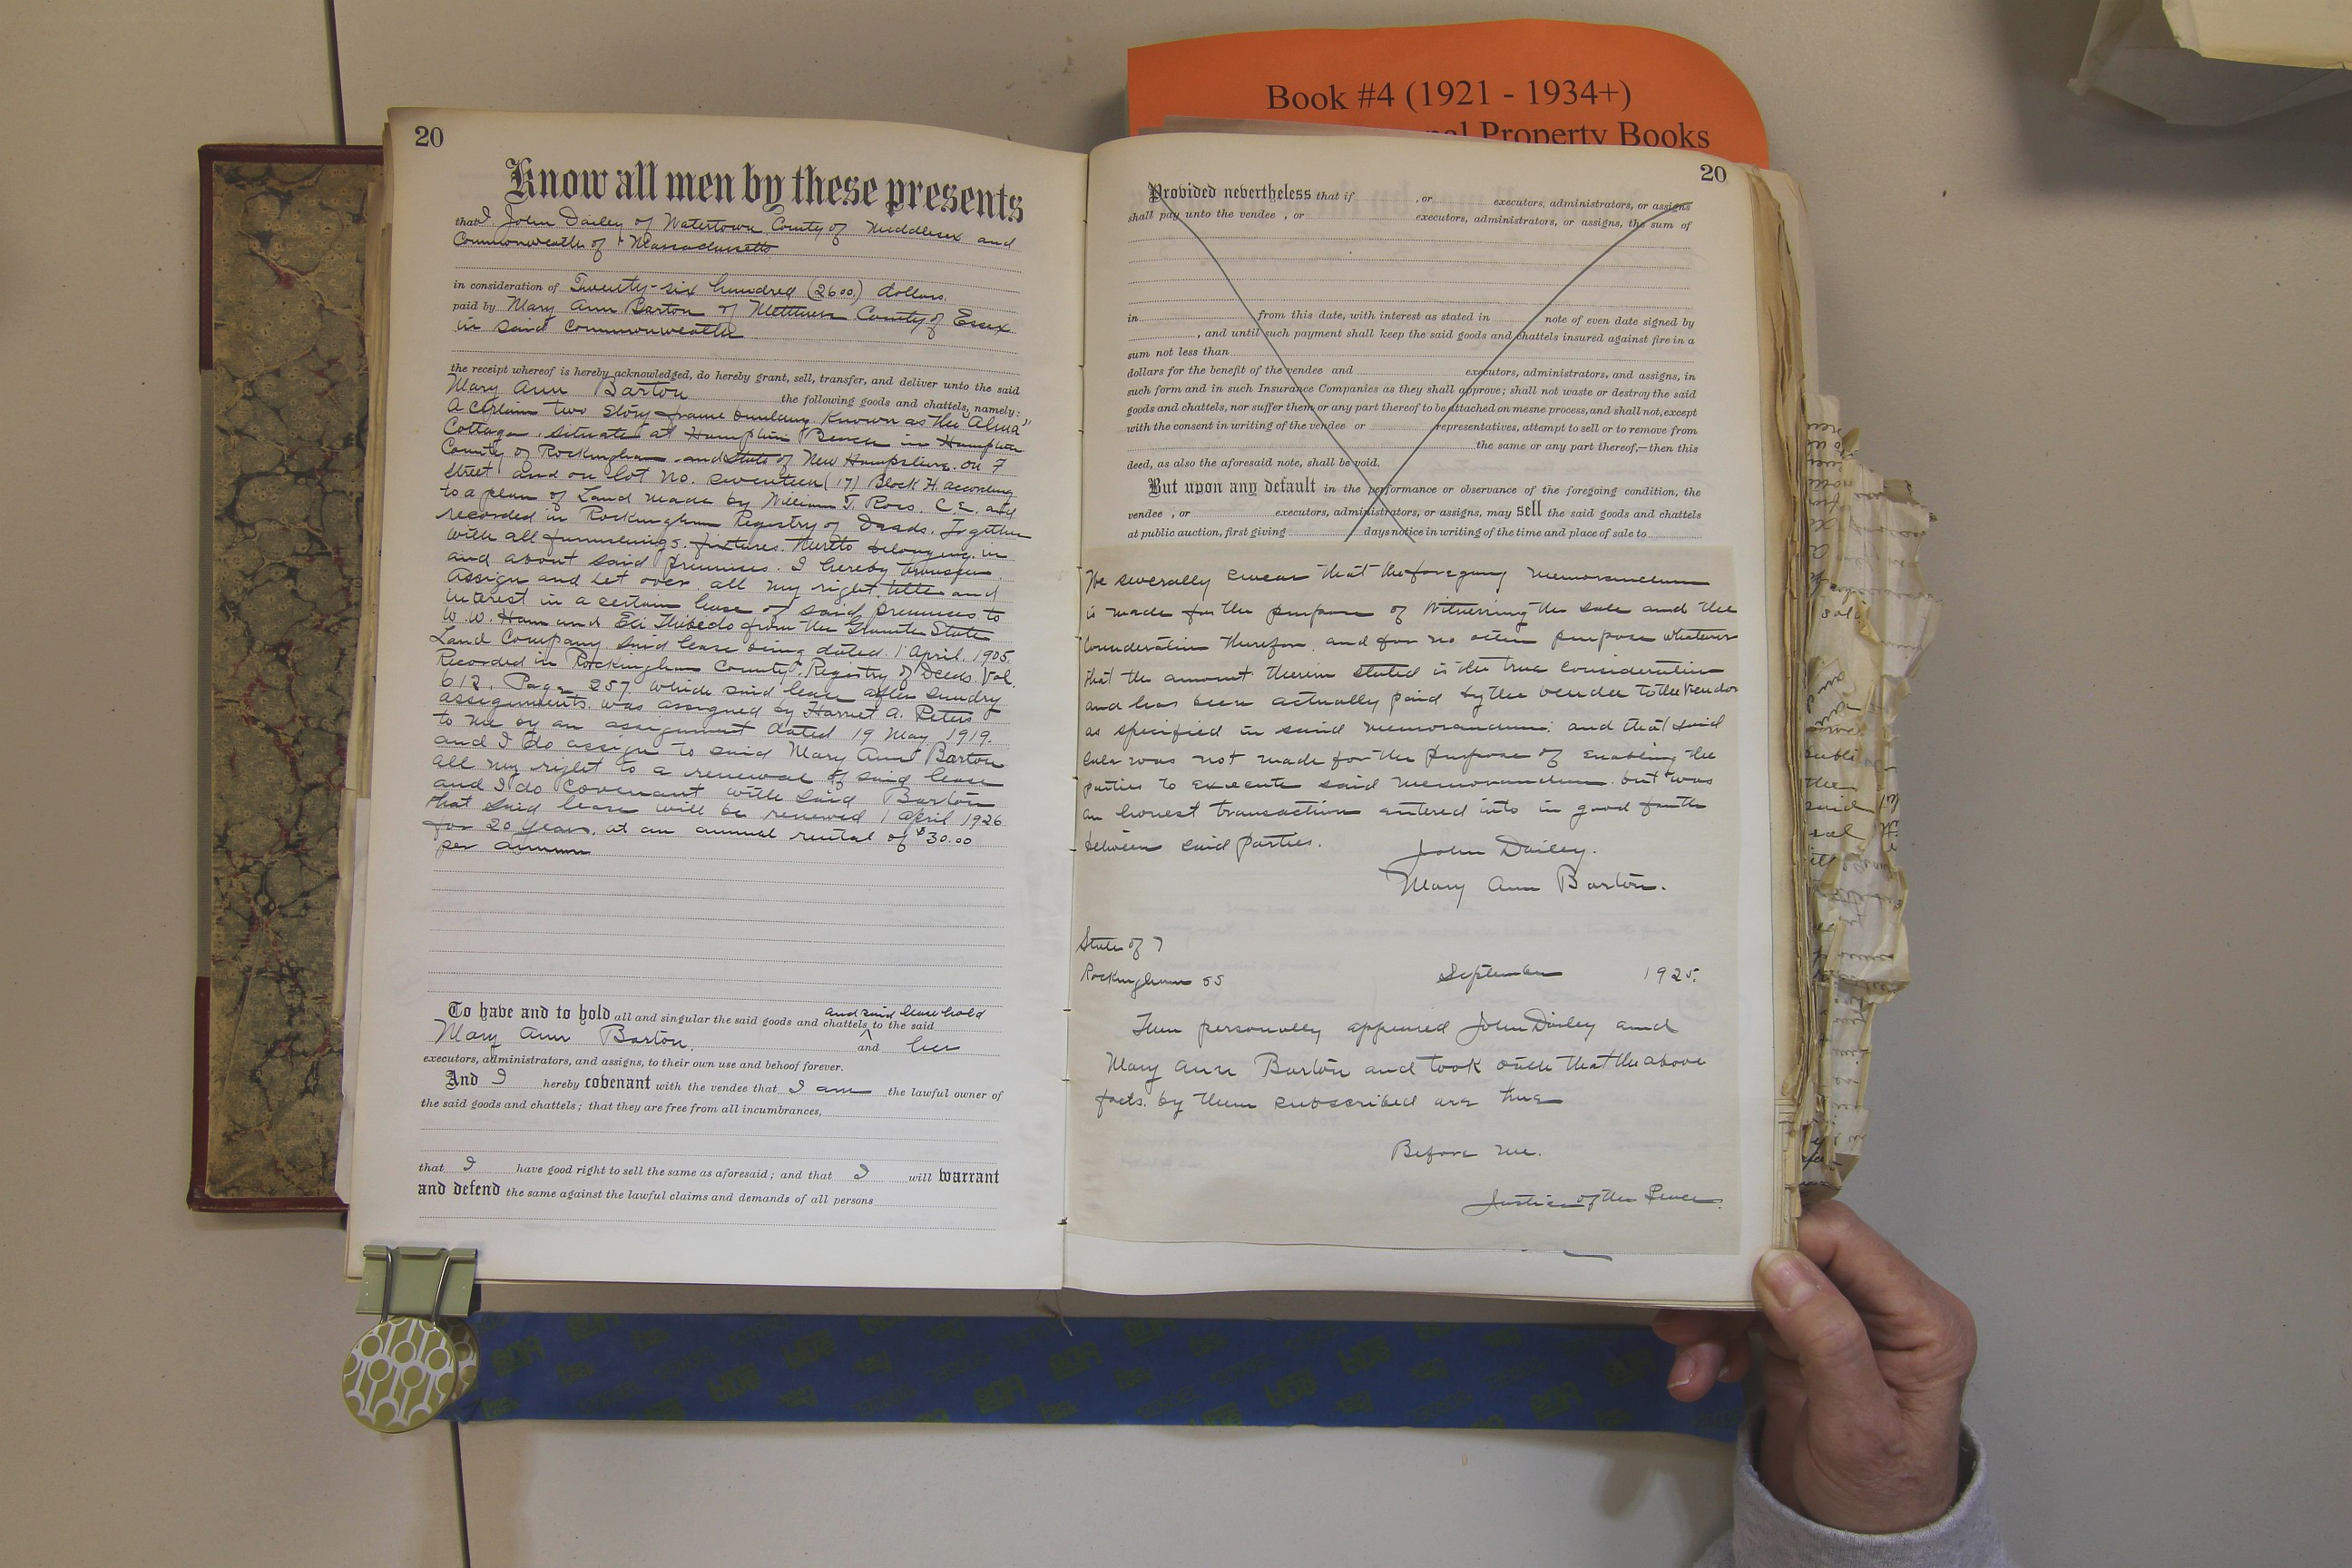 Book #4 (1921 - 1934+)
nal Property Books
20
Know all men by these presents
that I John Dailey of Watertown County of Middlesex and
Commonwealth of Massachusetts
in consideration of Twenty-six hundred (2600.) dollars.
paid by Mary Ann Barton of Methuen County of Essex
in said Commonwealth
the receipt whereof is hereby acknowledged, do hereby grant, sell, transfer, and deliver unto the said
Mary Ann Barton the following goods and chattels, namely:
A certain two story frame building known as the "Alma"
Cottage, situate at Hampton Beach in Hampton
County of Rockingham and State of New Hampshire. on 7
street and on lot No. seventeen (17) Block H according
to a plan of Land made by William T. Ross. C.E. and
recorded in Rockingham Registry of Deeds. Together
with all furnishings. fixtures. thereto belonging. in
and about said premises. I hereby transfer.
assign and set over all my right, title and
interest in a certain lease of said premises to
W. W. Ham and Eli Thibedo from the Granite State
Land Company. said lease being dated 1 April. 1905.
Recorded in Rockingham County. Registry of Deeds. Vol.
612. Page 257. which said lease after sundry
assignments. was assigned by Harriet A. Peters
to me by an assignment dated 19 May 1919.
and I do assign to said Mary Ann Barton
all my right to a renewal of said lease
and I do covenant with said Barton
that said lease will be renewed 1 April 1926
for 20 years. at an annual rental of $30.00
per annum
To have and to hold all and singular the said goods and chattels and said leasehold to the said
Mary Ann Barton. and her
executors, administrators, and assigns, to their own use and behoof forever.
And I hereby covenant with the vendee that I am the lawful owner of
the said goods and chattels; that they are free from all incumbrances,
that I have good right to sell the same as aforesaid; and that I will warrant
and defend the same against the lawful claims and demands of all persons
20
Provided nevertheless that if , or executors, administrators, or assigns
shall pay unto the vendee , or executors, administrators, or assigns, the sum of
in from this date, with interest as stated in note of even date signed by
, and until such payment shall keep the said goods and chattels insured against fire in a
sum not less than
dollars for the benefit of the vendee and executors, administrators, and assigns, in
such form and in such Insurance Companies as they shall approve; shall not waste or destroy the said
goods and chattels, nor suffer them or any part thereof to be attached on mesne process, and shall not, except
with the consent in writing of the vendee or representatives, attempt to sell or to remove from
the same or any part thereof,—then this
deed, as also the aforesaid note, shall be void.
But upon any default in the performance or observance of the foregoing condition, the
vendee , or executors, administrators, or assigns, may sell the said goods and chattels
at public auction, first giving days notice in writing of the time and place of sale to
We severally swear that the foregoing memorandum
is made for the purpose of witnessing the sale and the
consideration therefor, and for no other purpose whatever
that the amount therein stated is the true consideration
and has been actually paid by the vendee to the vendor
as specified in said memorandum: and that said
sale was not made for the purpose of enabling the
parties to execute said memorandum. but was
an honest transaction entered into in good faith
between said parties.
John Dailey.
Mary Ann Barton.
State of
Rockingham ss September 1925.
Then personally appeared John Dailey and
Mary Ann Barton and took oath that the above
facts. by them subscribed are true
Before me.
Justice of the Peace.